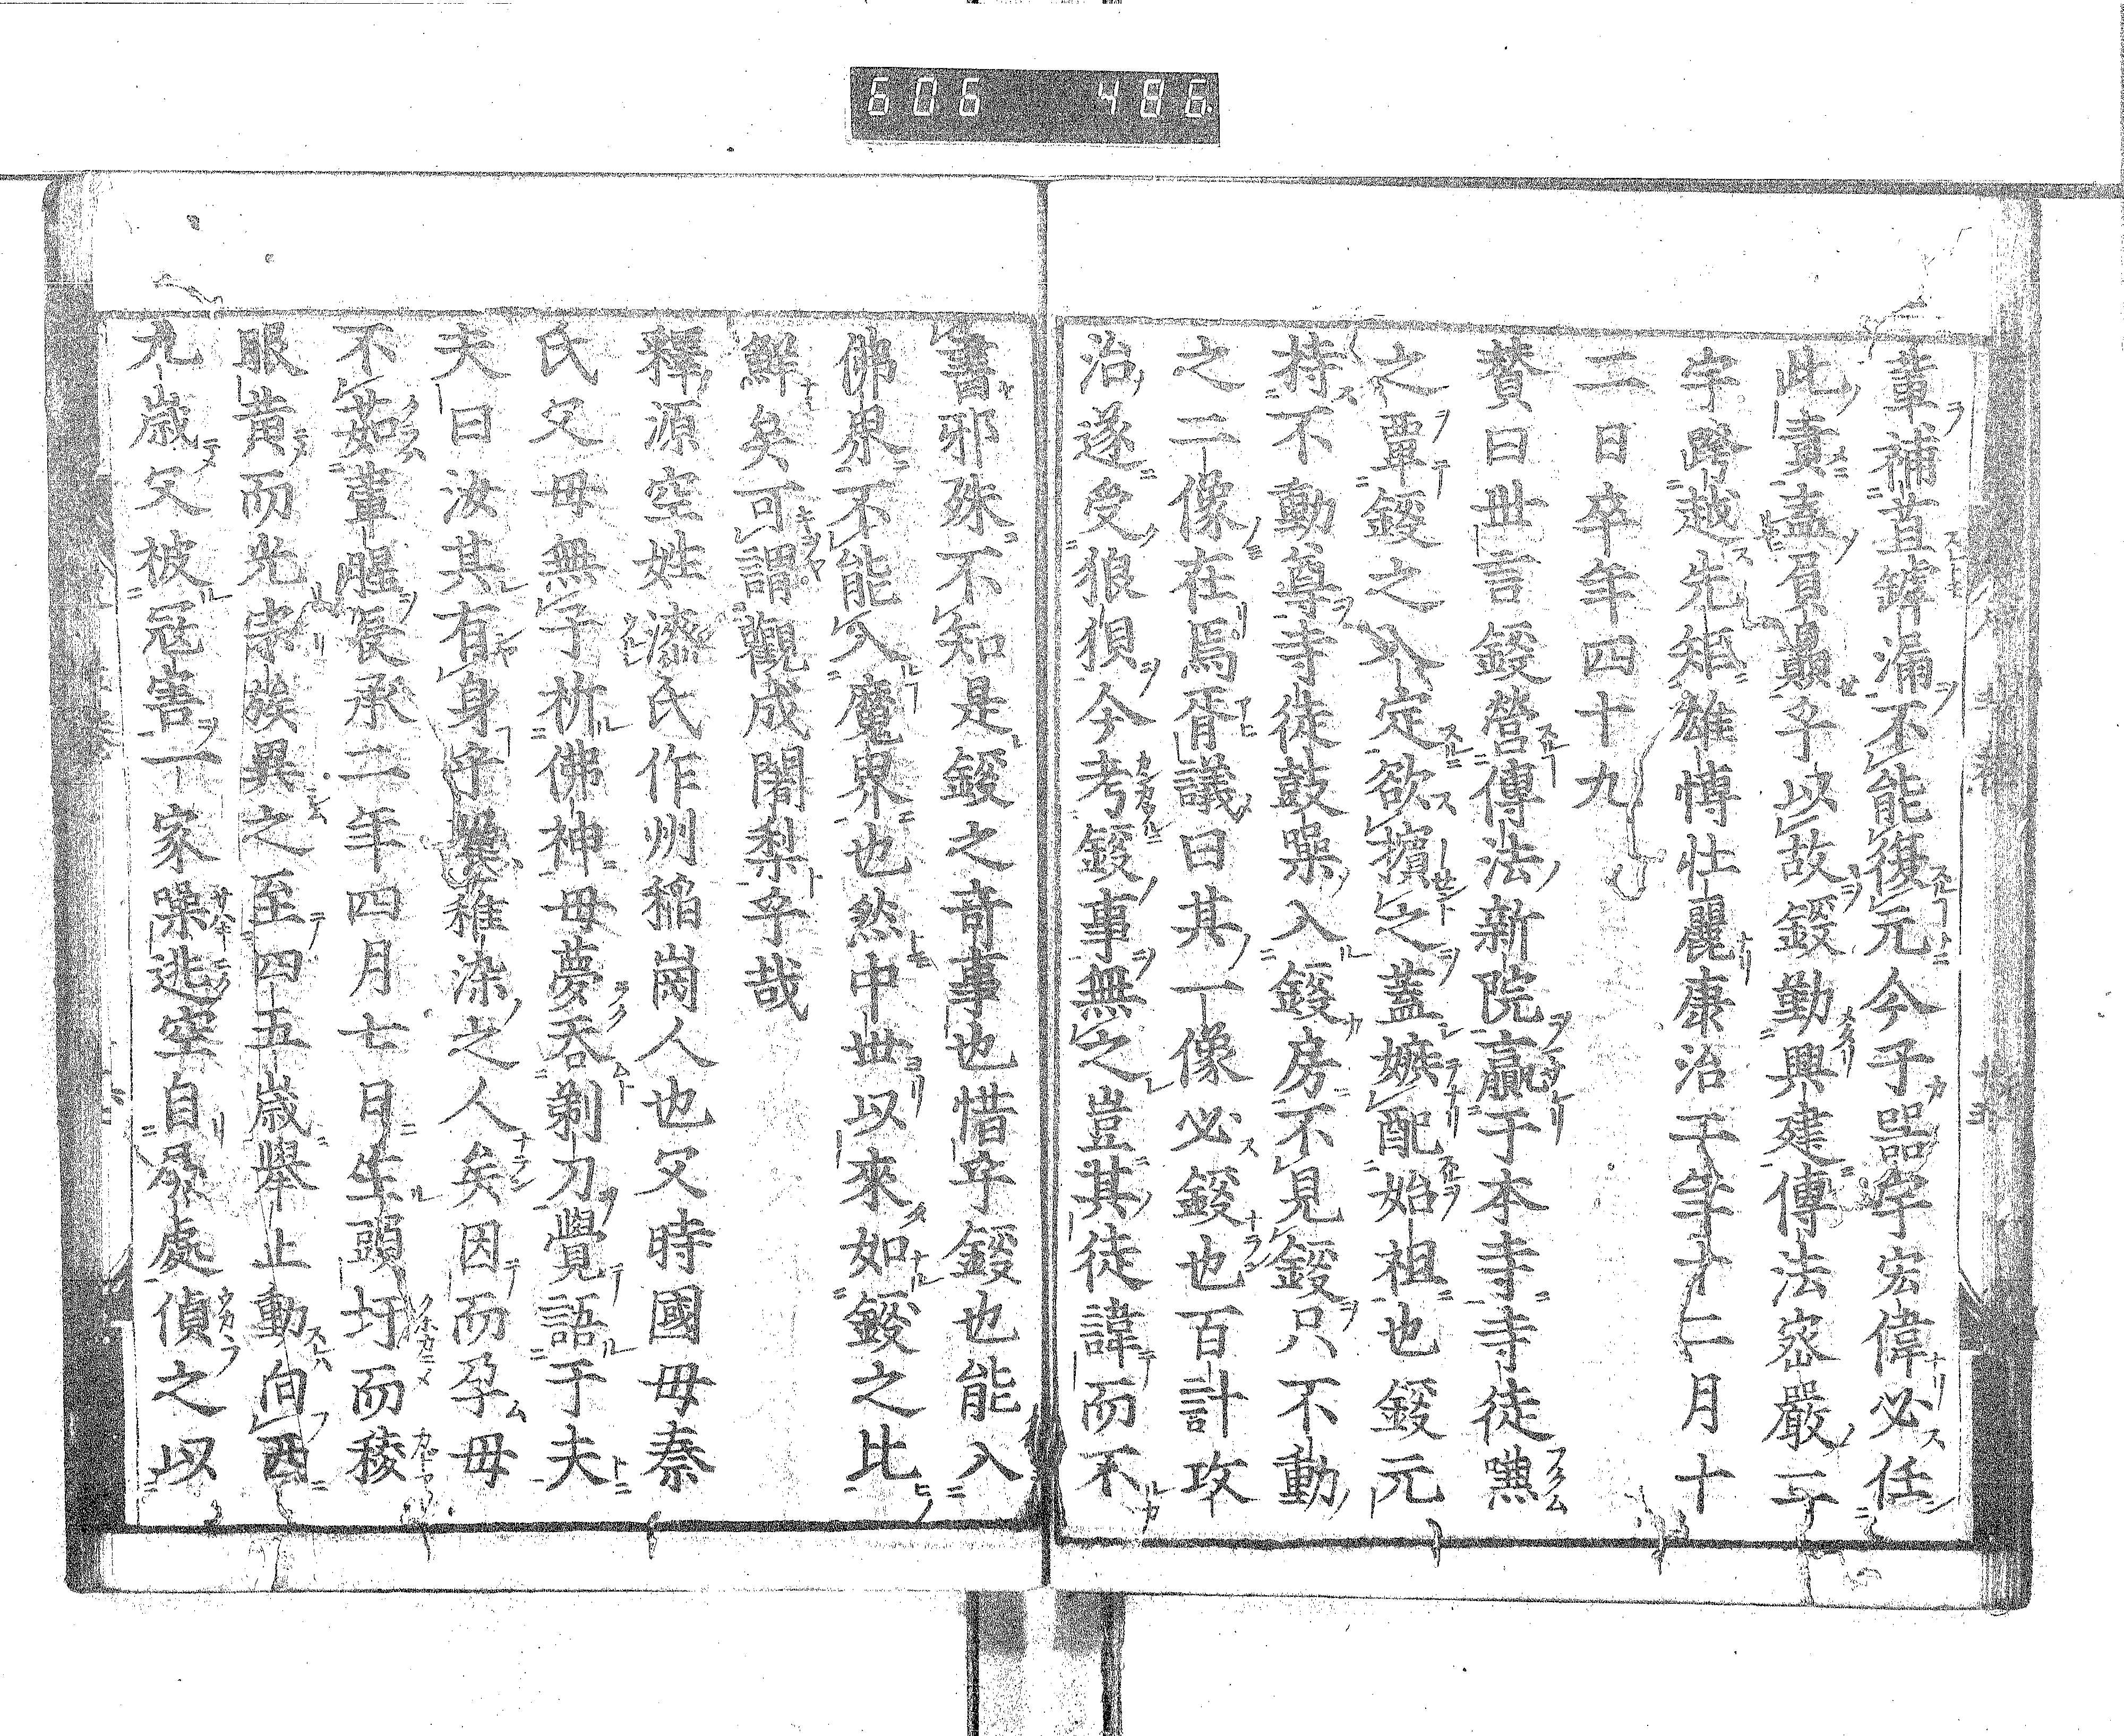 606 486
葺補苴罅漏不能復元今子器宇宏偉必任
此責盍屓贔乎以故鍐勤興建傳法密嚴二
宇跨越先矩雄博壯麗康治二年十二月十
二日卒年四十九
贊曰世言鍐營傳法新院贏于本寺寺徒嚥
之覃鍐之入定欲擯之蓋嫉配始祖也鍐元
持不動尊寺徒鼓譟入鍐房不見鍐只不動
之二像在焉胥議曰其一像必鍐也百計攻
治遂受狼狽今考鍐事無之豈其徒諱而不
書邪殊不知是鍐之奇事也惜乎鍐也能入
佛界不能入魔界也然中世以來如鍐之比
鮮矣可謂觀成闍梨乎哉
釋源空姓漆氏作州稻岡人也父時國母秦
氏父母無子祈佛神母夢吞剃刀覺語于夫
夫曰汝其有身乎纂稚染之人矣因而孕母
不茹葷腥長承二年四月七日生頭圩而稜
眼黃而光崇族異之至四五歲舉止動向西
九歲父被冦害一家躁逃空自𠫤處偵之以